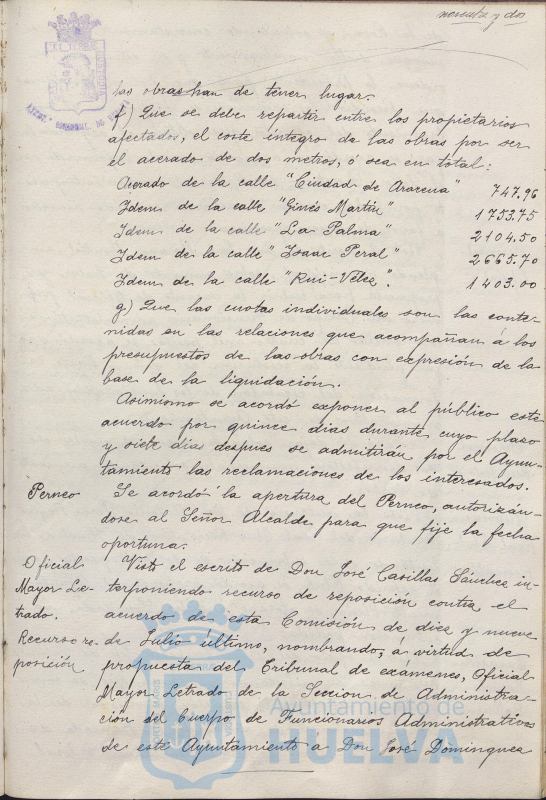 noventa y dos
las obras han de tener lugar.
f) Que se debe repartir entre los propietarios
afectados, el coste íntegro de las obras por ser
el acerado de dos metros, ó sea en total:
Acerado de la calle "Ciudad de Aracena" 747.96
Idem de la calle "Ginés Martín" 1753.75
Idem de la calle "La Palma" 2104.50
Idem de la calle "Isaac Peral" 2665.70
Idem de la calle "Rui-Vélez". 1403.00
g) Que las cuotas individuales son las conte-
nidas en las relaciones que acompañan á los
presupuestos de las obras con expresión de la
base de la liquidación.
Asimismo se acordó exponer al público este
acuerdo por quince días durante cuyo plazo
y siete días despues se admitirán por el Ayun-
tamiento las reclamaciones de los interesados.
Perneo Se acordó la apertura del Perneo, autorizán-
dose al Señor Alcalde para que fije la fecha
oportuna.
Oficial Visto el escrito de Don José Casillas Sánchez in-
Mayor Le- terponiendo recurso de reposición contra el
trado. acuerdo de esta Comisión de diez y nueve
Recurso re- de Julio último, nombrando, á virtud de
posición propuesta del Tribunal de exámenes, Oficial
Mayor Letrado de la Seccion de Administra-
ción del Cuerpo de Funcionarios Administrativos
de este Ayuntamiento a Don José Domínguez
Ayuntamiento de
HUELVA